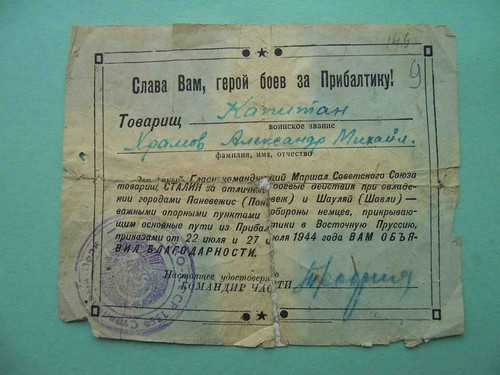 149
9
Слава Вам, герой боев за Прибалтику!
Товарищ Капитан
воинское звание
Храмов Александр Михайл.
фамилия, имя, отчество
Главнокомандующий Маршал Советского Союза
товарищ СТАЛИН за отличные боевые действия при овладе-
нии городами Паневежис (Пон век) и Шауляй (Шавли) —
важными опорными пунктами обороны немцев, прикрываю-
щим основные пути из Прибал тики в Восточную Пруссию,
приказами от 22 июля и 27 июля 1944 года ВАМ ОБЪЯ-
ВИЛ БЛАГОДАРНОСТИ.
Настоящее удостоверяю
КОМАНДИР ЧАСТИ